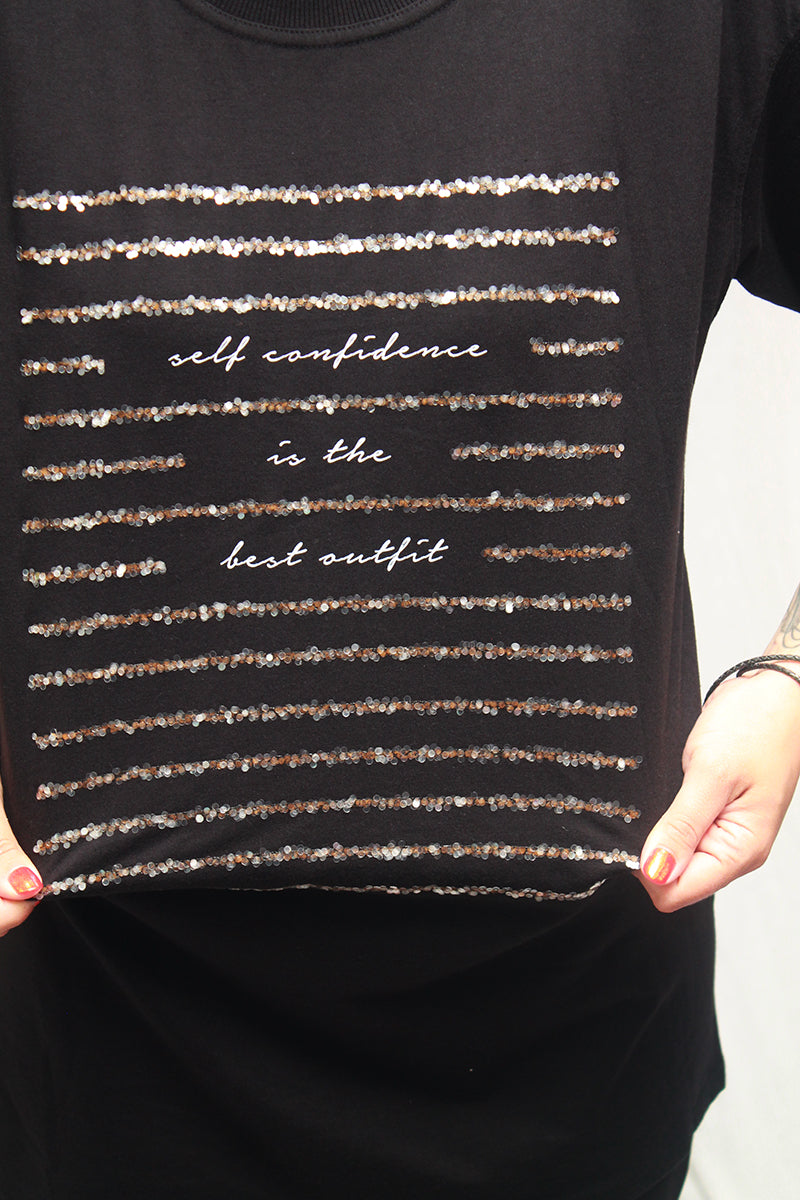 self confidence
is the
best outfit